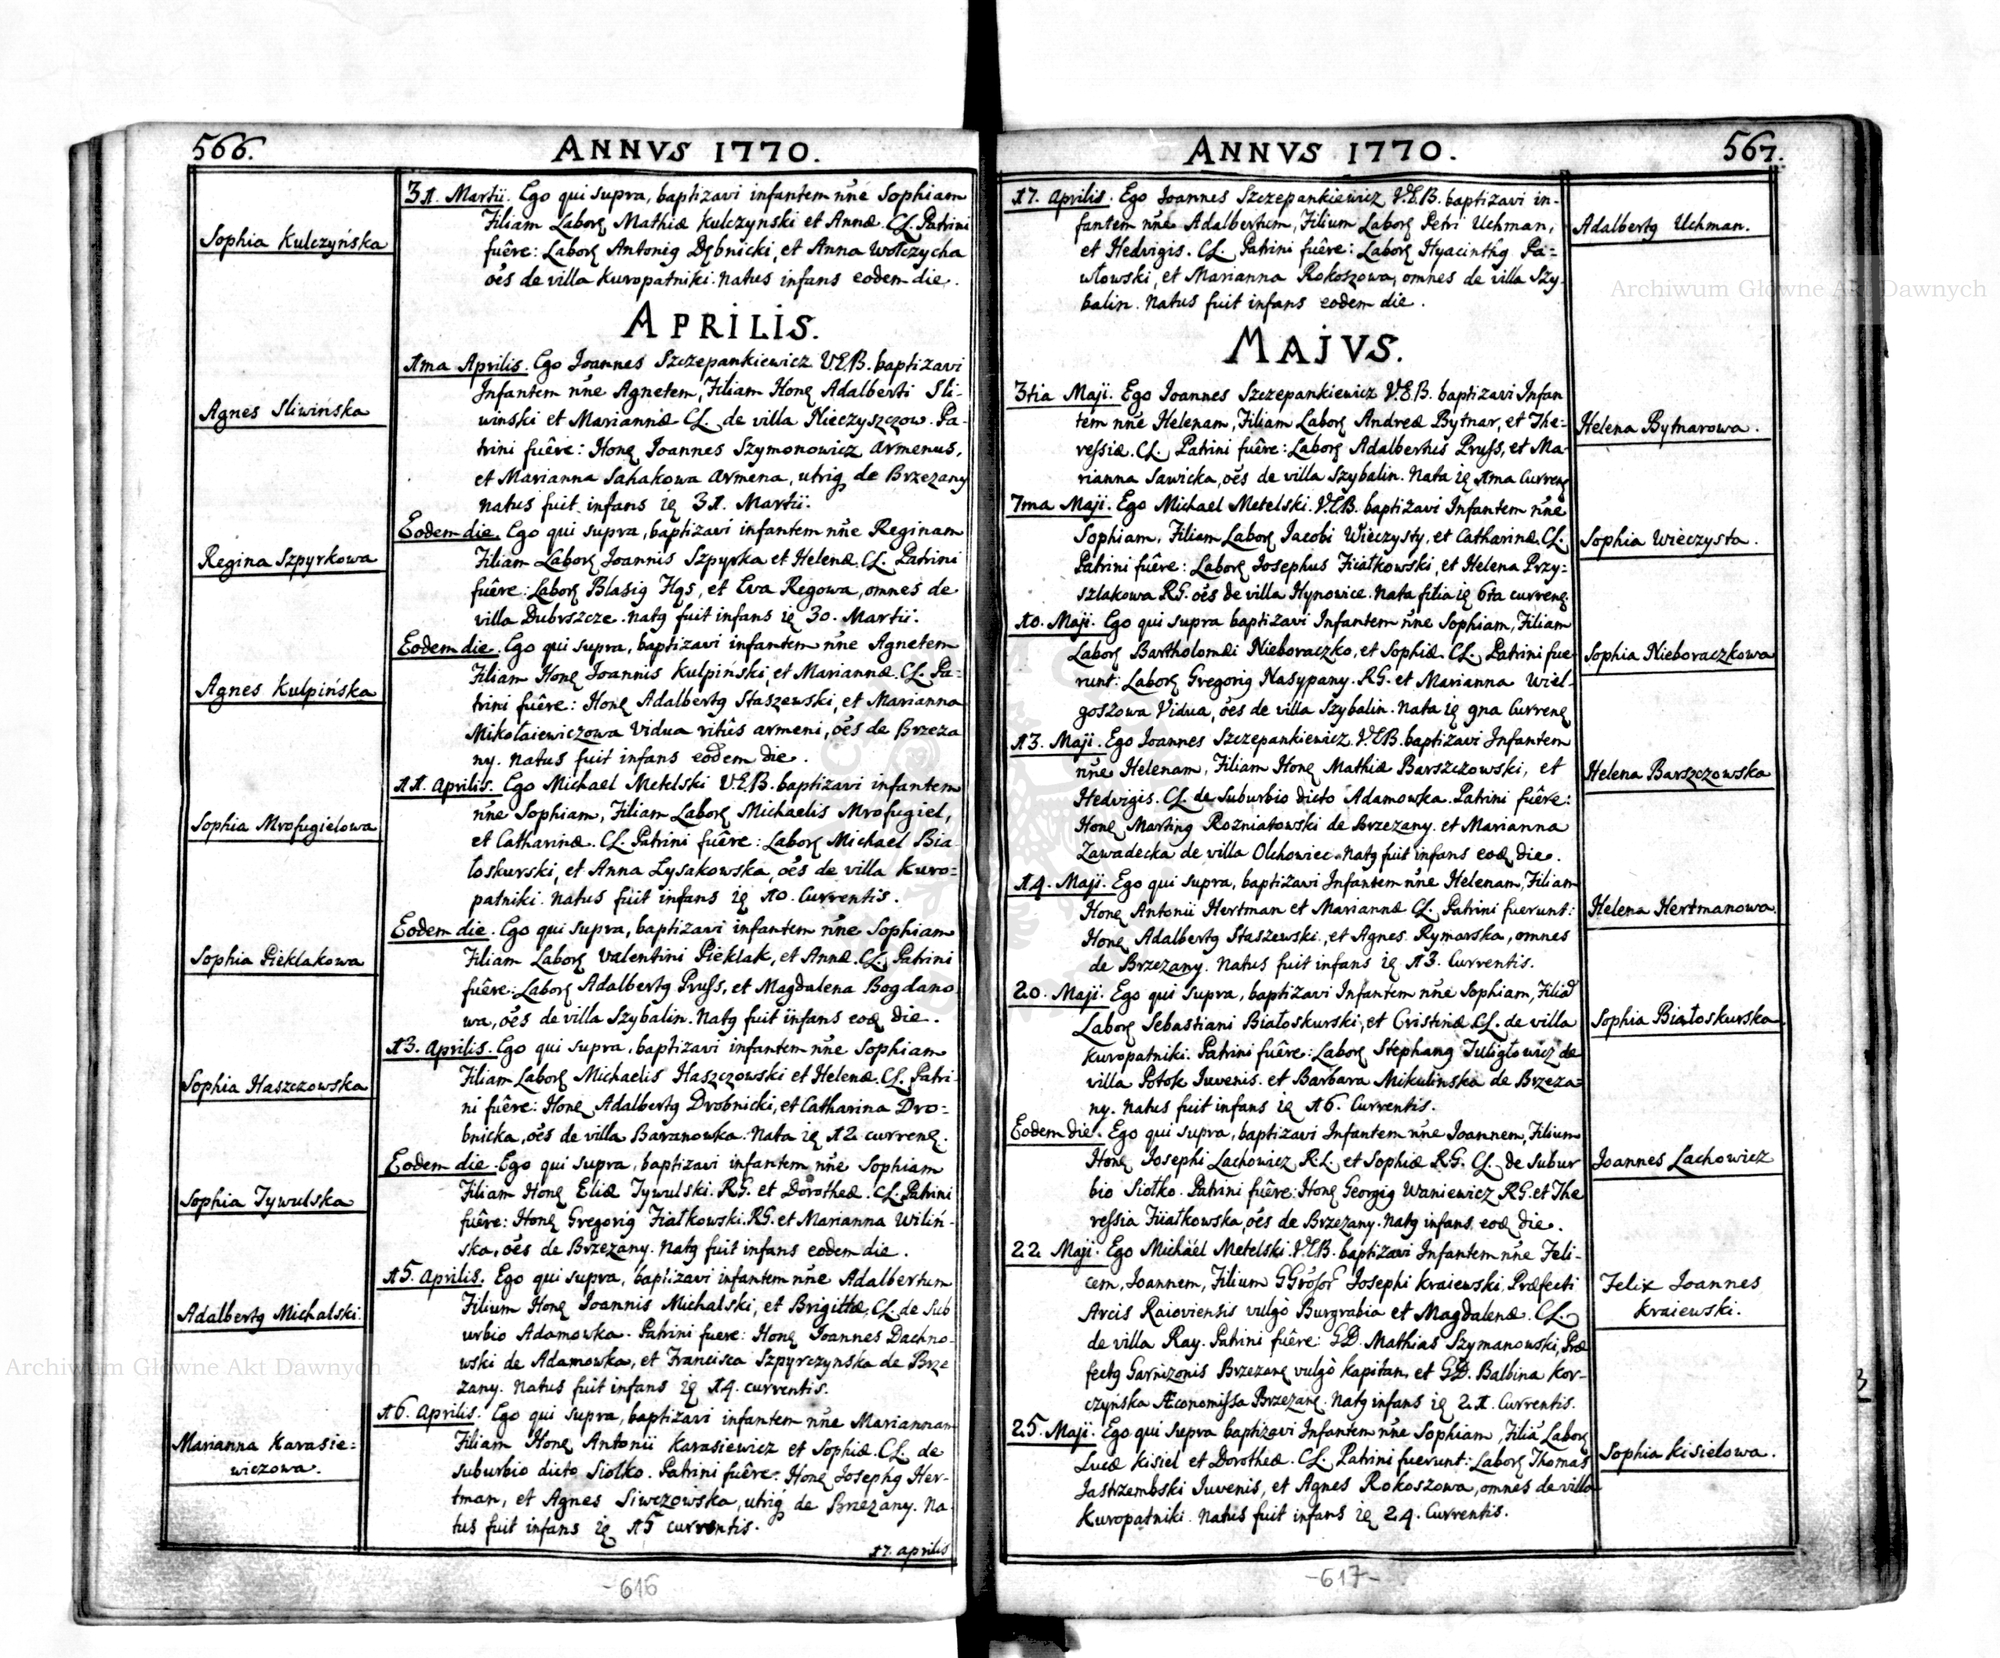 566.
ANNVS 1770.
Sophia Kulczyńska
Agnes Sliwińska
Regina Szpyrkowa
Agnes Kulpińska
Sophia Mrofugielowa
Sophia Pieklakowa
Sophia Haszczowska
Sophia Tywulska
Adalbertꝯ Michalski.
Marianna Karasie=
wiczowa.
31. Martii. Ego qui supra, baptizavi infantem nn̄e Sophiam
Filiam Labor̨ Mathiæ Kulczynski et Annæ. CL. Patrini
fuêre: Labor̨ Antoniꝯ Dębnicki, et Anna Wołczycha
oēs de villa Kuropatniki. Natus infans eodem die.
APRILIS.
1ma Aprilis. Ego Joannes Szczepankiewicz V.E.B. baptizavi
Infantem nn̄e Agnetem, Filiam Hon̨ Adalberti Sli-
winski et Mariannæ CL. de villa Nieczyszczow. Pa-
trini fuêre: Hon̨ Joannes Szymonowicz Armenus,
et Marianna Sahakowa Armena, utriꝯ de Brzezany
Natus fuit infans iȩ 31. Martii.
Eodem die. Ego qui supra, baptizavi infantem nn̄e Reginam
Filiam Labor̨ Joannis Szpyrka et Helenæ. CL. Patrini
fuêre: Labor̨ Blasiꝯ Hąs, et Eva Regowa, omnes de
villa Dubrszcze. Natꝯ fuit infans iȩ 30. Martii.
Eodem die. Ego qui supra, baptizavi infantem nn̄e Agnetem
Filiam Hon̨ Joannis Kulpiński, et Mariannæ. CL. Pa-
trini fuêre: Hon̨ Adalbertꝯ Staszewski, et Marianna
Mikołaiewiczowa Vidua ritûs armeni, oēs de Brzeza
ny. Natus fuit infans eodem die.
11. Aprilis. Ego Michael Metelski V.E.B. baptizavi infantem
nn̄e Sophiam, Filiam Labor̨ Michaelis Mrofugiel,
et Catharinæ. CL. Patrini fuêre: Labor̨ Michael Bia-
łoskurski, et Anna Lysakowska, oēs de villa Kuro=
patniki. Natus fuit infans iȩ 10. Currentis.
Eodem die. Ego qui supra, baptizavi infantem nn̄e Sophiam
Filiam Labor̨ Valentini Pieklak, et Annæ. CL. Patrini
fuêre: Labor̨ Adalbertꝯ Pruss, et Magdalena Bogdano-
wa, oēs de villa Szybalin. Natꝯ fuit infans eod̨ die.
13. Aprilis. Ego qui supra, baptizavi infantem nn̄e Sophiam
Filiam Labor̨ Michaelis Haszczowski et Helenæ. CL. Patri-
ni fuêre: Hon̨ Adalbertꝯ Drobnicki, et Catharina Dro=
bnicka, oēs de villa Baranowka. Nata iȩ 12 curren̨.
Eodem die. Ego qui supra, baptizavi infantem nn̄e Sophiam
Filiam Hon̨ Eliæ Tywulski. R.G. et Dorotheæ. CL. Patrini
fuêre: Hon̨ Gregoriꝯ Fiałkowski. RG. et Marianna Wiliń-
ska, oēs de Brzezany. Natꝯ fuit infans eodem die.
15. Aprilis. Ego qui supra, baptizavi infantem nn̄e Adalbertum
Filium Hon̨ Joannis Michalski, et Brigittæ. CL. de Sub
urbio Adamowka. Patrini fuere: Hon̨ Joannes Dachno-
wski de Adamowka, et Francisca Szpyrczynska de Brze
zany. Natus fuit infans iȩ 14. currentis.
16. Aprilis. Ego qui supra, baptizavi infantem nn̄e Mariannam
Filiam Hon̨ Antonii Karasiewicz et Sophiæ. CL. de
suburbio dicto Siołko. Patrini fuêre: Hon̨ Josephꝯ Her-
tman, et Agnes Siwczowska, utriꝯ de Brzezany. Na-
tus fuit infans iȩ 15 currentis.
17. Aprilis
-616
ANNVS 1770.
567.
17. Aprilis. Ego Joannes Szczepankiewicz V.E.B. baptizavi in-
fantem nn̄e Adalbertum, Filium Labor̨ Petri Uchman,
et Hedvigis. CL. Patrini fuêre: Labor̨ Hyacinthꝯ Pa=
włowski, et Marianna Rokoszowa, omnes de villa Szy-
balin. Natus fuit infans eodem die.
MAJVS.
3tia Maji. Ego Joannes Szczepankiewicz V.E.B. baptizavi Infan
tem nn̄e Helenam, Filiam Labor̨ Andreæ Bytnar, et The=
ressiæ. CL. Patrini fuêre: Labor̨ Adalbertus Pruss, et Ma-
rianna Sawicka, oēs de villa Szybalin. Nata iȩ 1ma Curren̨
7ma Maji. Ego Michael Metelski. V.E.B. baptizavi Infantem nn̄e
Sophiam, Filiam Labor̨ Jacobi Wieczysty, et Catharinæ. CL.
Patrini fuêre: Labor̨ Josephus Fiiałkowski, et Helena Przy=
szlakowa RG. oēs de villa Hynowice. Nata filia iȩ 6ta curren̨.
10. Maji. Ego qui supra baptizavi Infantem nn̄e Sophiam, Filiam
Labor̨ Bartholomæi Nieboraczko, et Sophiæ. CL. Patrini fue-
runt: Labor̨ Gregoriꝯ Nasypany. RG. et Marianna Wiel-
goszowa Vidua, oēs de villa Szybalin. Nata iȩ 9na Curren̨
13. Maji. Ego Joannes Szczepankiewicz. V.E.B. baptizavi Infantem
nn̄e Helenam, Filiam Hon̨ Mathiæ Barszczowski, et
Hedvigis. CL. de Suburbio dicto Adamowka. Patrini fuêre:
Hon̨ Martinꝯ Rozniatowski de Brzezany. et Marianna
Zawadecka de villa Olchowiec. Natꝯ fuit infans eod̨ die.
14. Maji. Ego qui supra, baptizavi Infantem nn̄e Helenam, Filiam
Hon̨ Antonii Hertman et Mariannæ CL. Patrini fuerunt:
Hon̨ Adalbertꝯ Staszewski, et Agnes Rymarska, omnes
de Brzezany. Natus fuit infans iȩ 13. Currentis.
20. Maji. Ego qui supra, baptizavi Infantem nn̄e Sophiam, Filiā
Labor̨ Sebastiani Białoskurski, et Cristinæ CL. de villa
Kuropatniki. Patrini fuêre: Labor̨ Stephanꝯ Tuligłowicz de
villa Potok Iuvenis. et Barbara Mikulinska de Brzeza
ny. Natus fuit infans iȩ 16. Currentis.
Eodem die. Ego qui supra, baptizavi Infantem nn̄e Joannem, Filium
Hon̨ Josephi Lachowicz R.L. et Sophiæ R.G. CL. de Subur
bio Siołko. Patrini fuêre: Hon̨ Georgiꝯ Waniewicz RG. et The
ressia Fiiałkowska, oēs de Brzezany. Natꝯ infans eod̨ die.
22. Maji. Ego Michäel Metelski. V.E.B. baptizavi Infantem nn̄e Feli-
cem, Joannem, Filium Josephi Kraiewski, Præfecti
Arcis Raioviensis vulgò Burgrabia et Magdalenæ. CL.
de villa Ray. Patrini fuêre: GD. Mathias Szymanowski, Præ
fectꝯ Garnizonis Brzezan̨ vulgò Kapitan, et GD. Balbina Kor-
czyńska Æconomissa Brzezan̨. Natꝯ infans iȩ 21. Currentis.
25. Maji. Ego qui supra baptizavi Infantem nn̄e Sophiam, Filiā Labor̨
Lucæ Kisiel et Dorotheæ. CL. Patrini fuerunt: Labor̨ Thomas
Jastrzembski Iuvenis, et Agnes Rokoszowa, omnes de villa
Kuropatniki. Natus fuit infans iȩ 24. Currentis.
Adalbertꝯ Uchman.
Helena Bytnarowa.
Sophia Wieczysta.
Sophia Nieboraczkowa
Helena Barszczowska
Helena Hertmanowa.
Sophia Białoskurska
Joannes Lachowicz
Felix Joannes
Kraiewski.
Sophia Kisielowa.
-617-
Archiwum Główne Akt Dawnych
Archiwum Główne Akt Dawnych